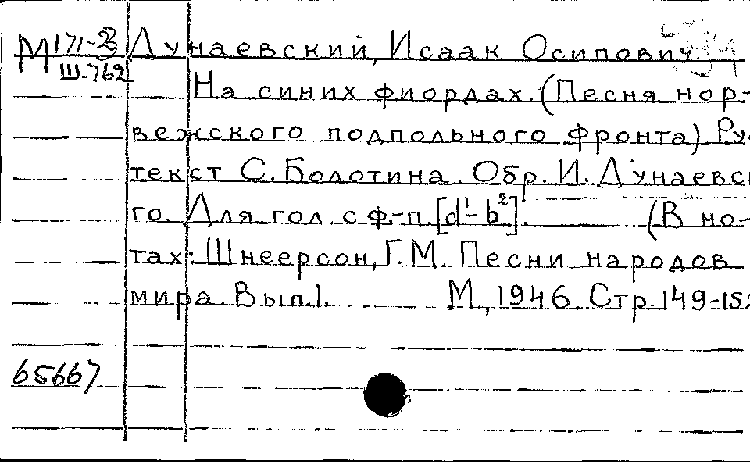 М 171-2
Ш-762
Дунаевский, Исаак Осипович
На синих фиордах. (Песня нор-
вежского подпольного фронта) Ру
текст С. Болотина. Обр. И. Дунаевск
го. Для гол. с ф-п. [d¹-b²]. (В но-
тах: Шнеерсон, Г. М. Песни народов
мира. Вып. 1. М., 1946. Стр. 149-15
65667